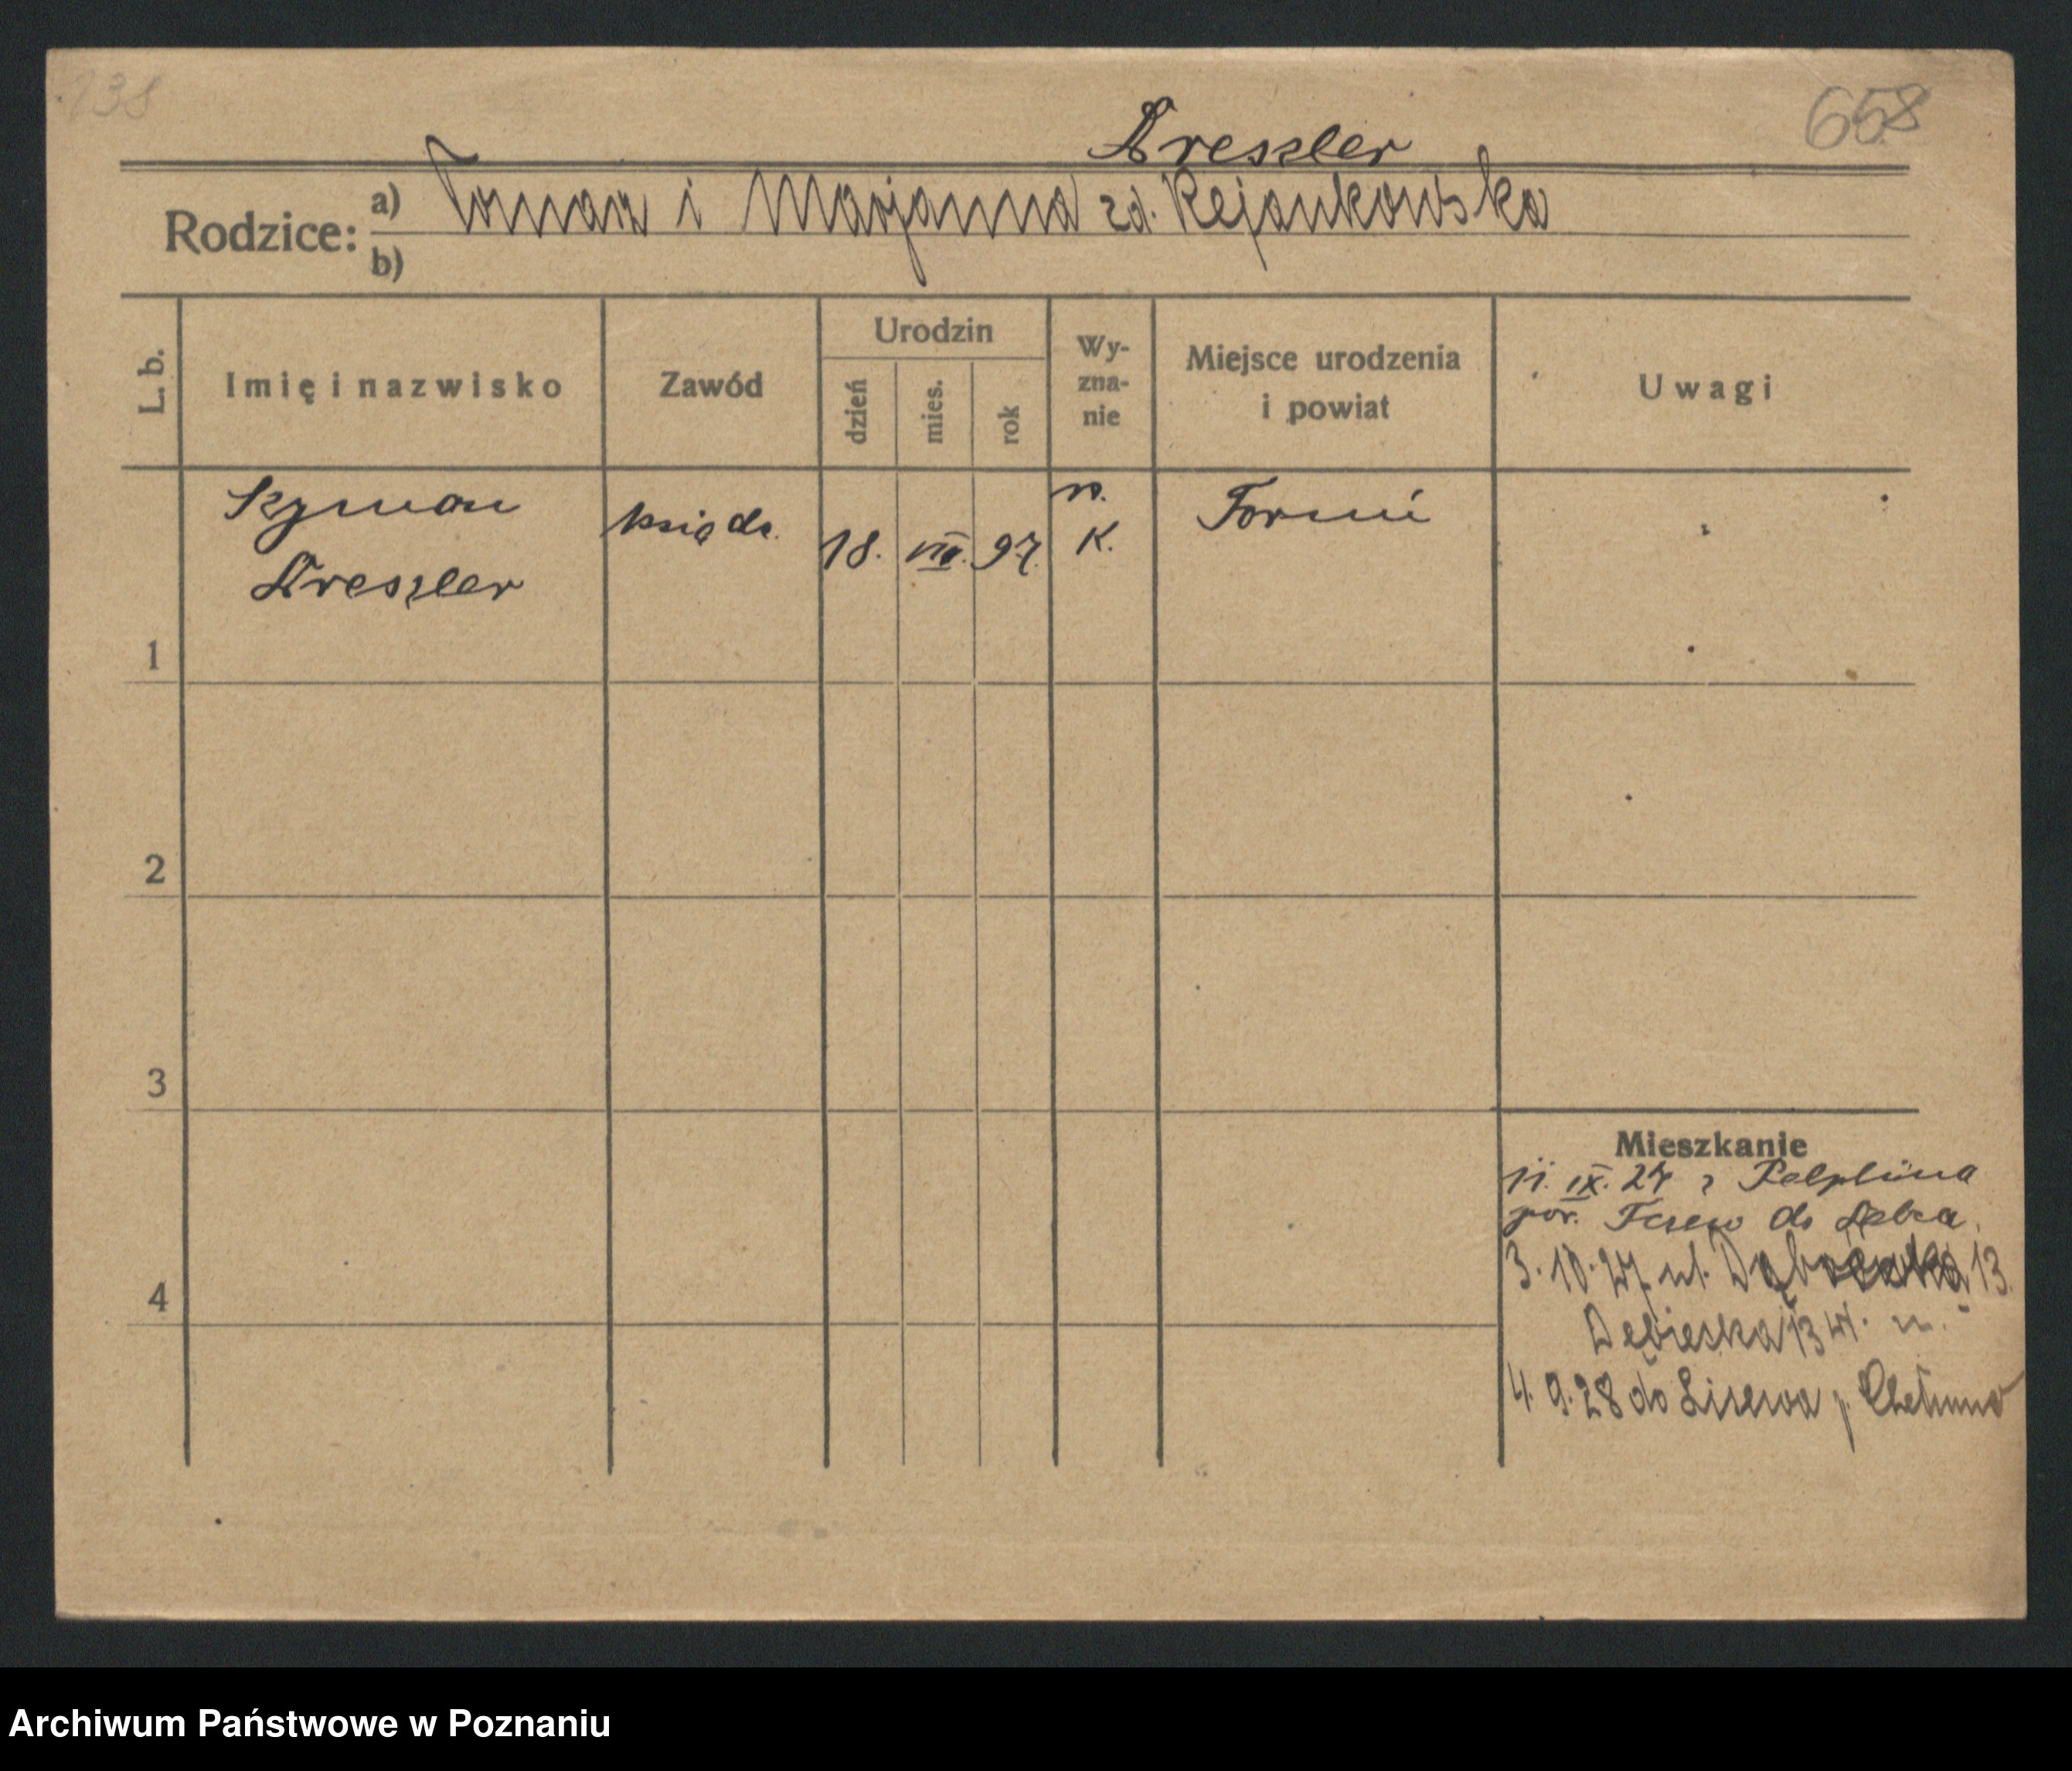 138
658
Dreszler
Rodzice: a) Tomasz i Marjanna zd. Rejankowska
b)
L. b. Imię i nazwisko Zawód Urodzin dzień mies. rok Wy-zna-nie Miejsce urodzenia i powiat Uwagi
Szymon ksiądz. 18. VIII. 97. r. Toruń
Dreszler K.
1
2
3
Mieszkanie
11. IX. 27 z Pelplina
pow. Tczew do Dębca.
3. 10. 27. ul. 13.
4
Dębiecka 13
4. 9. 28 do Lisewa p. Chełmno
Archiwum Państwowe w Poznaniu